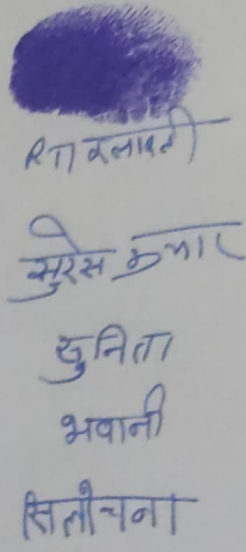 RTI कलावती
सुरेस कुमार
सुनिता
भवानी
सिलोचना